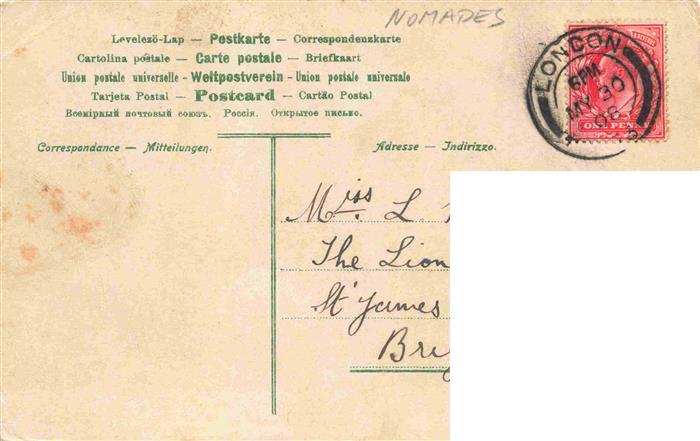 NOMADES
Levelező-Lap — Postkarte — Correspondenzkarte
Cartolina postale — Carte postale — Briefkaart
Union postale universelle - Weltpostverein - Union postale universale
Tarjeta Postal — Postcard — Cartão Postal
Всемірный почтовый союзъ. Россія. Открытое письмо.
LONDON
6 PM
MY 30
06
ONE PENNY
Correspondance — Mitteilungen.
Adresse — Indirizzo.
Miss. L.
The Lion
St James